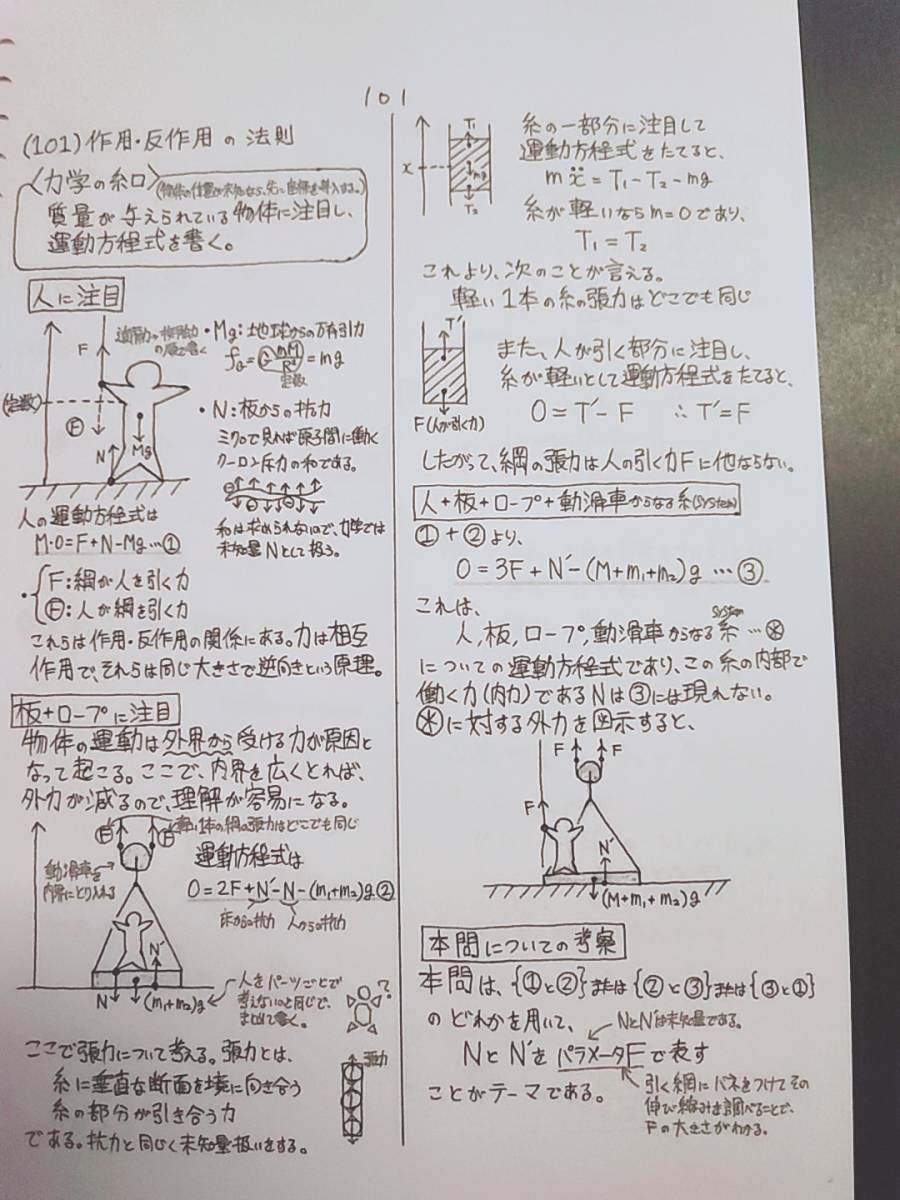 101
(101) 作用・反作用の法則
〈力学の糸口〉(物体の位置が未知なら、先に座標を導入する。)
質量が与えられている物体に注目し、
運動方程式を書く。
人に注目
F
(定数)
Ⓕ
N
Mg
・Mg:地球からの万有引力
= mg
定数
・N:板からの抗力
ミクロで見れば原子間に働く
クーロン斥力の和である。
和は求められないので、力学では
未知量Nとして扱う。
人の運動方程式は
M・0=F+N-Mg…①
・{F:綱が人を引く力
Ⓕ:人が綱を引く力
これらは作用・反作用の関係にある。力は相互
作用で、それらは同じ大きさで逆向きという原理。
板+ロープに注目
物体の運動は外界から受ける力が原因と
なって起こる。ここで、内界を広くとれば、
外力が減るので、理解が容易になる。
F F
軽い1本の綱の張力はどこでも同じ
動滑車を
内界にとり入れる
運動方程式は
0=2F+N'-N-(m₁+m₂)g②
床からの抗力 人からの抗力
N'
N
(m₁+m₂)g
人をパーツごとで
考えないのと同じで、
まとめて書く。
?
ここで張力について考える。張力とは、
糸に垂直な断面を境に向き合う
糸の部分が引き合う力
である。抗力と同じく未知量扱いをする。
張力
x
T₁
mg
T₂
糸の一部分に注目して
運動方程式をたてると、
mẍ = T₁-T₂-mg
糸が軽いならm=0であり、
T₁=T₂
これより、次のことが言える。
軽い1本の糸の張力はどこでも同じ
T'
F(人が引く力)
また、人が引く部分に注目し、
糸が軽いとして運動方程式をたてると、
0=T'-F ∴T'=F
したがって、綱の張力は人の引く力Fに他ならない。
人+板+ロープ+動滑車からなる系(system)
①+②より、
0=3F+N'-(M+m₁+m₂)g …③
これは、
system
人,板,ロープ,動滑車からなる系…※
についての運動方程式であり、この系の内部で
働く力(内力)であるNは③には現れない。
※に対する外力を図示すると、
F F
F
N'
(M+m₁+m₂)g
本問についての考察
本問は、{①と②}または{②と③}または{③と①}
のどれかを用いて、
NとN'は未知量である。
NとN'をパラメータFで表す
ことがテーマである。
引く綱にバネをつけてその
伸び縮みを調べることで、
Fの大きさがわかる。